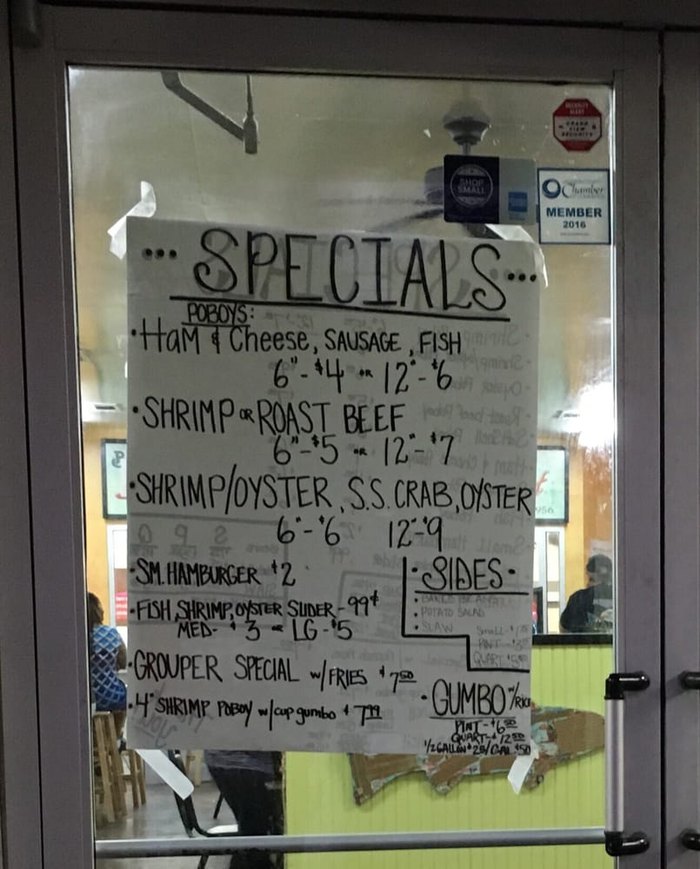 SECURITY
ALERT
SHOP
SMALL
Chamber
MEMBER
2016
... SPECIALS ...
POBOYS:
• Ham & Cheese, SAUSAGE, FISH
6" - $4 or 12" - $6
• SHRIMP OR ROAST BEEF
6" - $5 or 12" - $7
• SHRIMP/OYSTER, S.S. CRAB, OYSTER
6" - $6 12" - $9
• SM. HAMBURGER $2
• FISH, SHRIMP, OYSTER SLIDER - 99¢
MED - $3 - LG - $5
• GROUPER SPECIAL w/FRIES $7.50
• 4" SHRIMP POBOY w/cup gumbo $7.99
• SIDES •
• BAKED BEANS
• POTATO SALAD
• SLAW
Small -
PINT -
QUART
• GUMBO w/RICE
PINT - $6.50
QUART - $12.50
1/2 GALLON $25/GAL $50